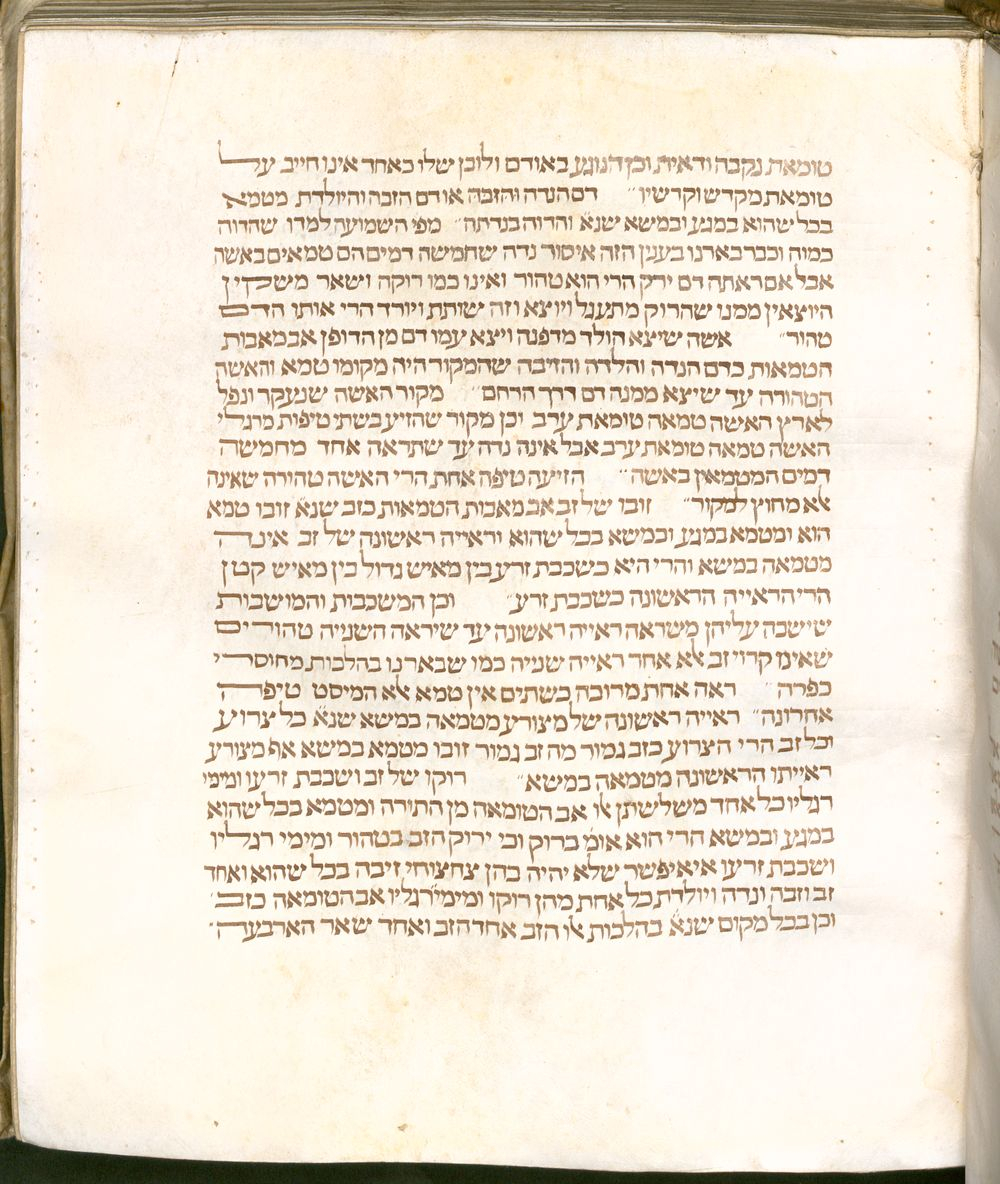 טומאת נקבה ודאית וכן הנוגע באודם ולובן שלו כאחר אינו חייב על
טומאת מקדש וקדשיו״ דם הנדה והזבה אודם הזבה והיולדת מטמא
בכל שהוא במגע ובמשא שנא׳ והדוה בנדתה״ מפי השמועה למדו שהדוה
כמוה וכבר בארנו בענין הזה איסור נדה שחמשה דמים הם טמאים באשה
אבל אם ראתה דם ירק הרי הוא טהור ואינו כמו רוקה ושאר משקין
היוצאין ממנו שהרוק מתעגל ויוצא וזה שותת ויורד הרי אותו הדם
טהור״ אשה שיצא הולד מדפנה ויצא עמו דם מן הדופן אב מאבות
הטמאות כדם הנדה והלדה והזיבה שהמקור היה מקומו טמא והאשה
הטהורה עד שיצא ממנה דם דרך הרחם״ מקור האשה שנעקר ונפל
לארץ האשה טמאה טומאת ערב וכן מקור שהזיע בשתי טיפות מרגלי׳
האשה טמאה טומאת ערב אבל אינה נדה עד שתראה אחד מחמשה
דמים המטמאין באשה״ הזיעה טיפה אחת הרי האשה טהורה שאינה
אלא מחוץ למקור״ זובו של זב אב מאבות הטמאות כזב שנא׳ זובו טמא
הוא ומטמא במגע ובמשא בכל שהוא וראייה ראשונה של זב אינה
מטמאה במשא והרי היא כשכבת זרע בין מאיש גדול בין מאיש קטן
הרי הראייה הראשונה כשכבת זרע״ וכן המשכבות והמושבות
שישבה עליהן משראה ראייה ראשונה עד שיראה השנייה טהורים
שאינו קרוי זב אלא אחד ראייה שנייה כמו שבארנו בהלכות מחוסרי
כפרה״ ראה אחת מרובה כשתים אין טמא אלא המיסט טיפה
אחרונה״ ראייה ראשונה של מצורע מטמאה במשא שנא׳ כל צרוע
וכל זב הרי הצרוע כזב גמור מה זב גמור זובו מטמא במשא אף מצורע
ראייתו הראשונה מטמאה במשא״ רוקו של זב ושכבת זרעו ומימי
רגליו כל אחד משלשתן אלו אב הטומאה מן התורה ומטמא בכל שהוא
במגע ובמשא הרי הוא אומ׳ ברוק וכי ירוק הזב בטהור ומימי רגליו
ושכבת זרעו אי איפשר שלא יהיה בהן צחצוחי זיבה בכל שהוא ואחד
זב וזבה ונדה ויולדת כל אחת מהן רוקו ומימי רגליו אב הטומאה כזב
וכן בכל מקום שנא׳ בהלכות אלו הזב אחד הזב ואחד שאר הארבעה